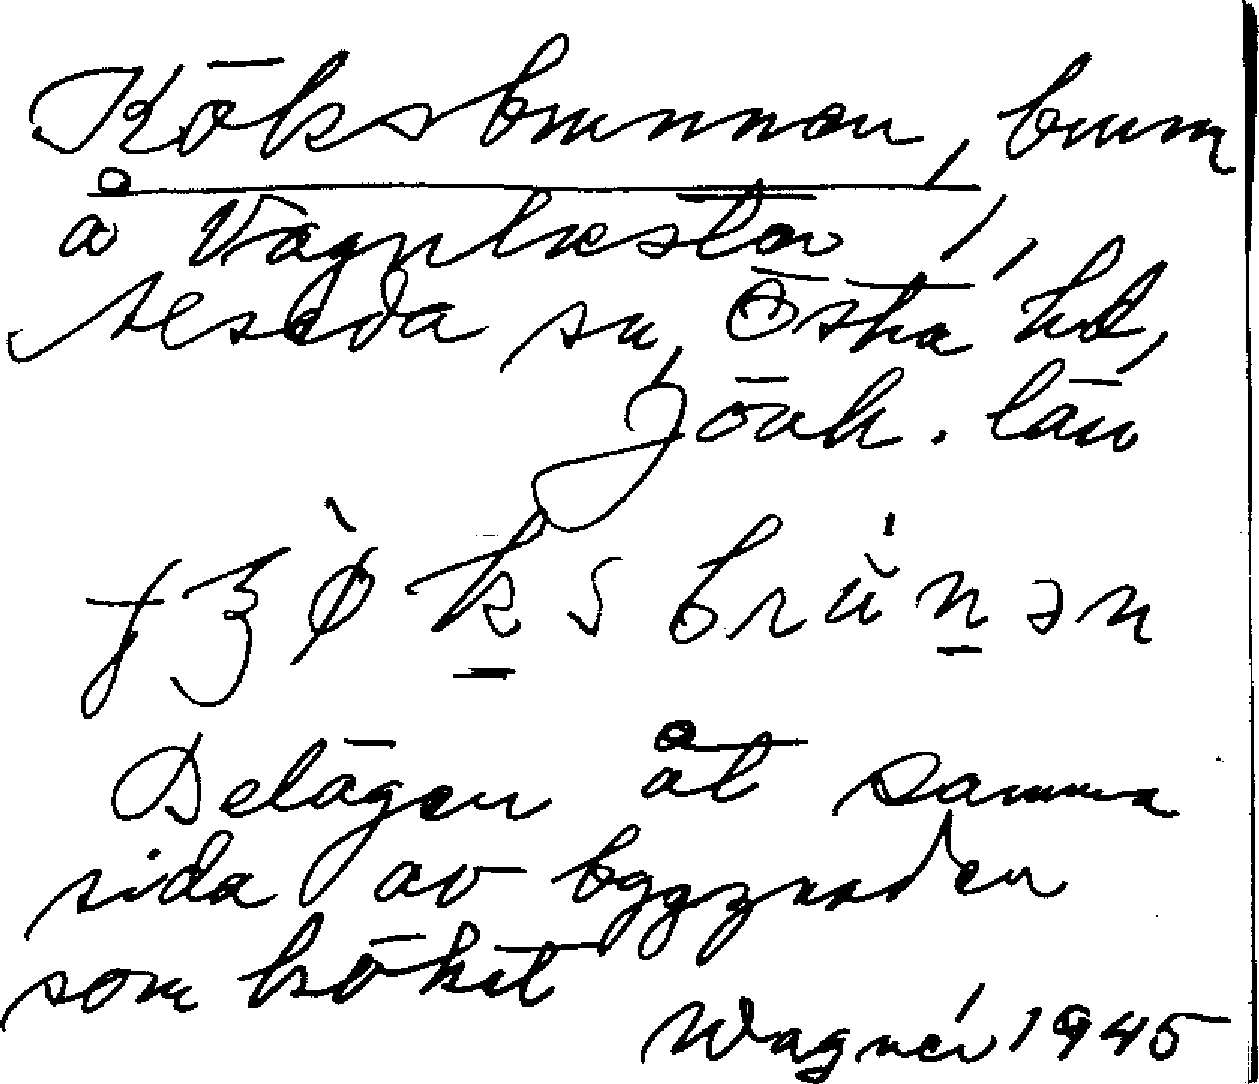 Köksbrunnen, brunn
å Vägnhester,
Alseda sn, Östra hd,
Jönk. län
Belägen åt samma
sida av byggnaden
som köket
Wagnér 1945